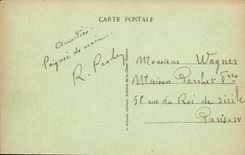 CARTE POSTALE
Amitiés
Poignée de main
R.
Monsieur Wagner
Maison Perchet Frs
51 rue du Roi de Sicile
Paris IV